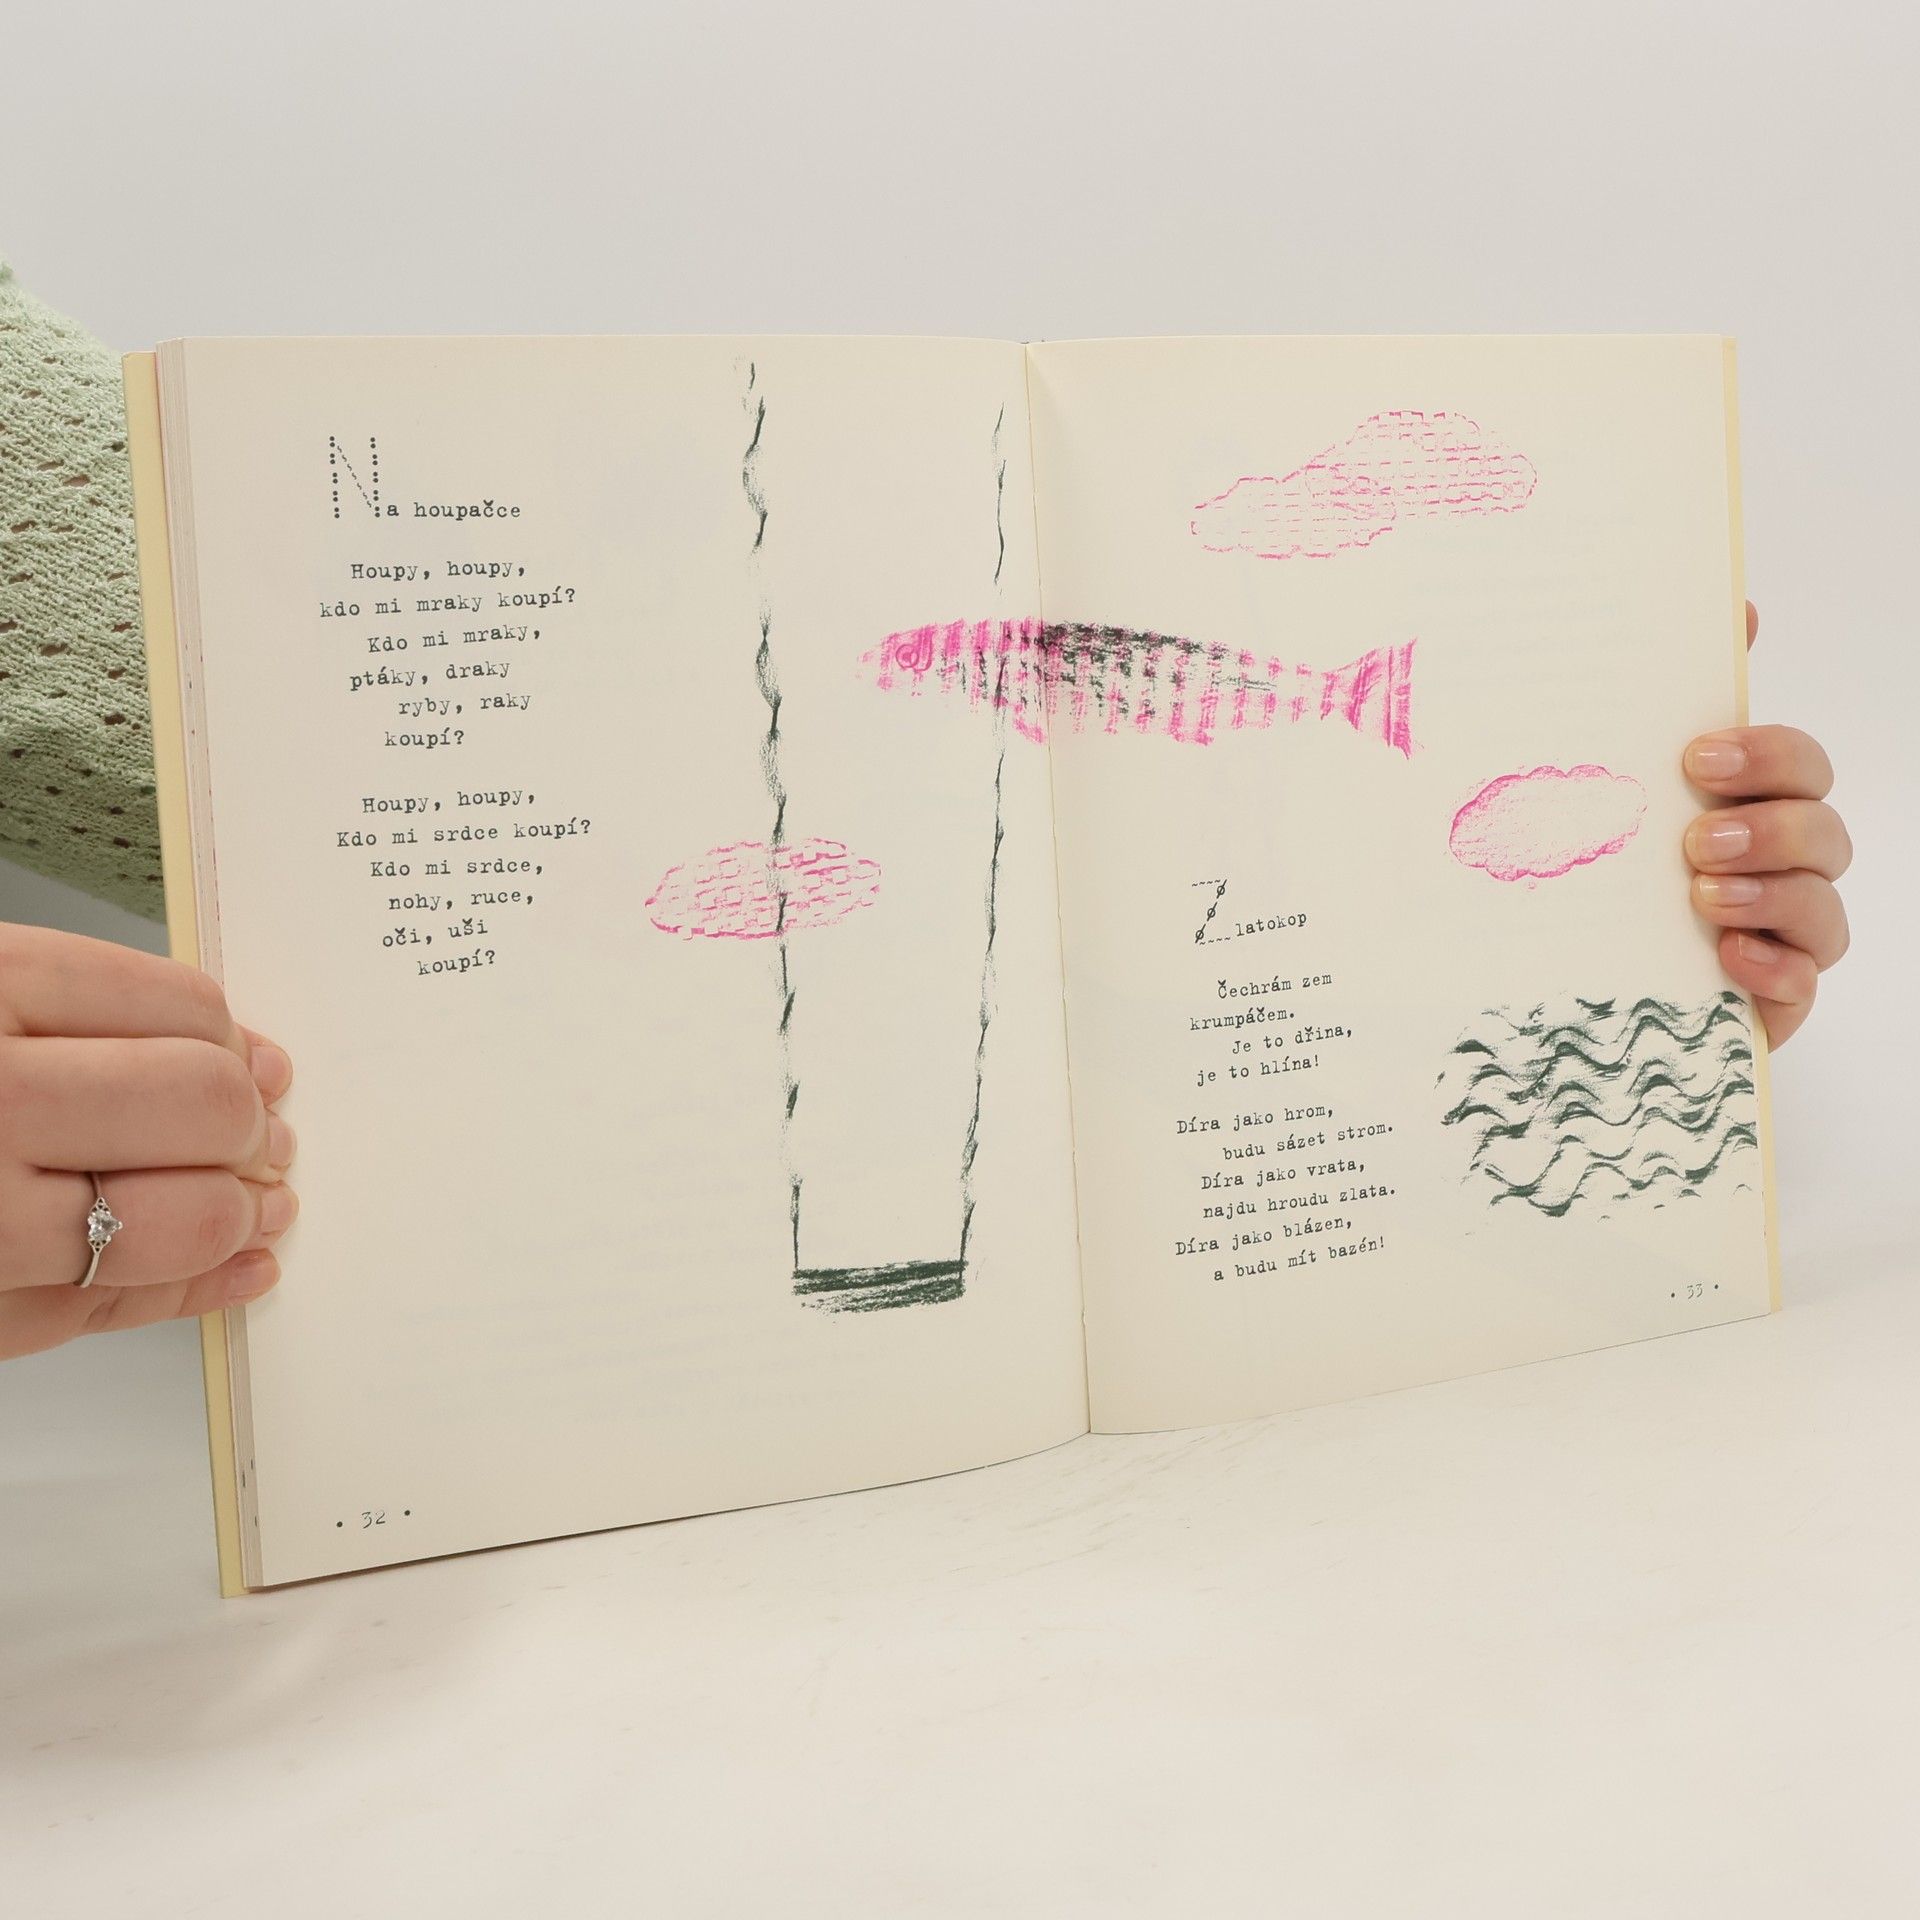 Na houpačce
Houpy, houpy,
kdo mi mraky koupí?
Kdo mi mraky,
ptáky, draky
ryby, raky
koupí?
Houpy, houpy,
Kdo mi srdce koupí?
Kdo mi srdce,
nohy, ruce,
oči, uši
koupí?
• 32 •
Zlatokop
Čechrám zem
krumpáčem.
Je to dřina,
je to hlína!
Díra jako hrom,
budu sázet strom.
Díra jako vrata,
najdu hroudu zlata.
Díra jako blázen,
a budu mít bazén!
• 33 •